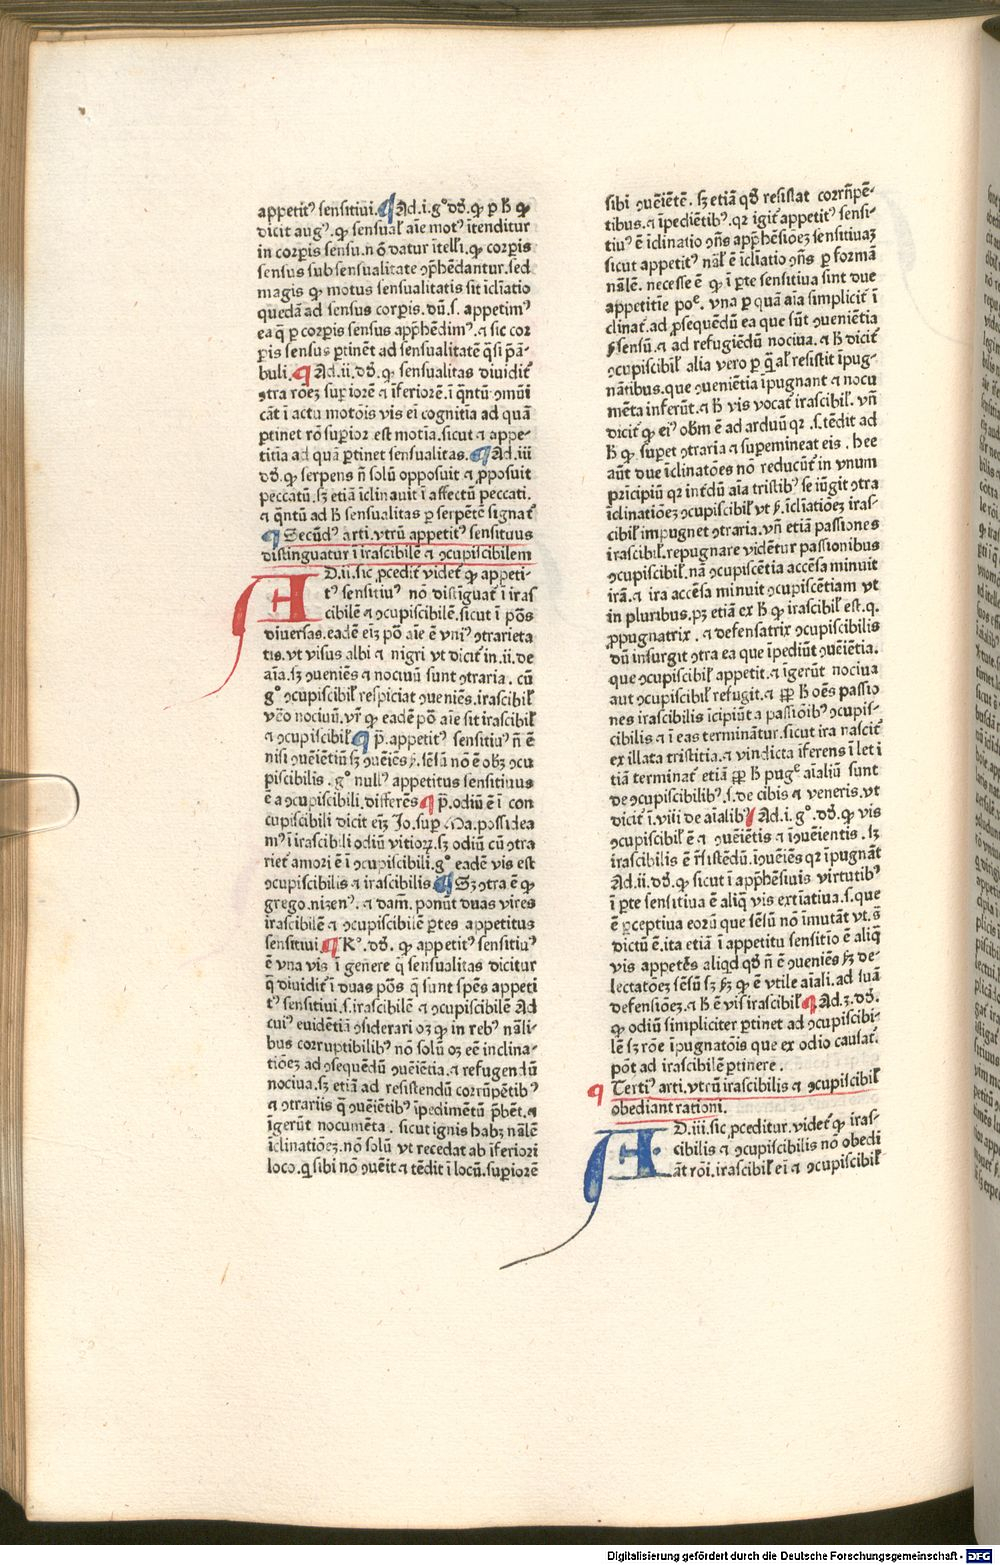 appetitꝰ sensitiui. ¶ Ad.i.gº dð. ꝙ ꝑ ħ ꝙ
dicit augꝰ. ꝙ sensual̄ aīe motꝰ ītenditur
in corꝑis sensu. nō datur ītell̄i. ꝙ corꝑis
sensus sub sensualitate ꝯp̄hēdantur. sed
magis ꝙ motus sensualitatis sit īcl̄iatio
quedā ad sensus corꝑis. dū. s. appetimꝰ
ea q̄ ꝑ corꝑis sensus app̄hēdimꝰ. ⁊ sic cor
ꝑis sensus ꝑtinēt ad sensualitatē q̄si p̄ā-
buli. ¶ Ad.ii. dð. ꝙ sensualitas diuidit᷑
ꝯtra rōeꝫ supiorē ⁊ īferiorē. ī q̄ntū ꝯmūi
cāt ī actu motōis vis ei cognitīa ad quā
ꝑtinet rō supior est motīa. sicut ⁊ appe-
titīa ad quā ꝑtinet sensualitas. ¶ Ad.iii
dð. ꝙ serpens n̄ solū opposuit ⁊ ꝓposuit
peccatū. sꝫ etiā īclinauit ī affectū peccati.
⁊ q̄ntū ad ħ sensualitas ꝑ serpētē signat᷑
¶ Secūdꝰ arti. vtrū appetitꝰ sensituus
distinguatur ī irascibilē ⁊ ꝯcupiscibilem
AD.ii. sic ꝓcedit᷑ videt᷑ ꝙ appeti-
tꝰ sensitiuꝰ nō distīguat᷑ ī iras
cibilē ⁊ ꝯcupiscibilē. sicut ī pōs
diuersas. eadē eīꝫ pō aīe ē vniꝰ ꝯtrarieta
tis. vt visus albi ⁊ nigri vt dicit᷑ in.ii. de
aīa. sꝫ ꝯueniēs ⁊ nociuū sunt ꝯtraria. cū
gº ꝯcupiscibil̄ respiciat ꝯueniēs. irascibil̄
ꝟo nociuū. vr̄ ꝙ eadē pō aīe sit irascibil̄
⁊ ꝯcupiscibil̄ ¶ p̄. appetitꝰ sensitiuꝰ n̄ ē
nisi ꝯueiētiū sꝫ ꝯueniēs ẜ. sēsū nō ē obꝫ ꝯcu
piscibilis. gº nullꝰ appetitus sensitiuus
ē a ꝯcupiscibili. differēs ¶ p̄. odiū ē ī con
cupiscibili dicit eīꝫ Jo. suꝑ Ma. possidea
mꝰ ī irascibili odiū vitioꝝ. sꝫ odiū cū ꝯtra
riet᷑ amori ē ī ꝯcupiscibili. gº eadē vis est
ꝯcupiscibilis ⁊ irascibilis ¶ Sꝫ ꝯtra ē ꝙ
grego. nizenꝰ. ⁊ dam̄. ponūt duas vires
irascibilē ⁊ ꝯcupiscibilē ꝑtes appetitus
sensitiui ¶ Rº. dð. ꝙ appetitꝰ sensitiuꝰ
ē vna vis ī genere q̄ sensualitas dicitur
q̄ diuidit᷑ ī duas pōs q̄ sunt spēs appeti
tꝰ sensitiui. s. irascibilē ⁊ ꝯcupiscibilē Ad
cuiꝰ euidētiā ꝯsiderari oꝫ ꝙ in rebꝰ nāli-
bus corruptibilibꝰ nō solū oꝫ eē inclina-
tiōeꝫ ad ꝯsequēdū ꝯueiētia. ⁊ refugendū
nociua. sꝫ etiā ad resistendū corrūpētibꝰ
⁊ ꝯtrariis q̄ ꝯueiētibꝰ īpedimētū p̄bēt. ⁊
īgerūt nocumēta. sicut ignis habꝫ nālē
īclinatiōeꝫ. nō solū vt recedat ab īferiori
loco. q̄ sibi nō ꝯueīt ⁊ tēdit ī locū. supiorē
sibi ꝯueiētē. sꝫ etiā qð resistat corrūpē-
tibus. ⁊ īpediētibꝰ. qꝛ igit᷑ appetitꝰ sensi-
tiuꝰ ē īclinatio ꝯn̄s app̄hēsiōeꝫ sensitiuaꝫ
sicut appetitꝰ nāl̄ ē īcl̄iatio ꝯn̄s ꝑ formā
nālē. necesse ē ꝙ ī ꝑte sensitiua sint due
appetitīe poᵉ. vna ꝑ quā aīa simplicit᷑ ī
clinat᷑. ad ꝓsequēdū ea que sūt ꝯueniētia
ẜ sensū. ⁊ ad refugiēdū nociua. ⁊ ħ dicit᷑
ꝯcupiscibil̄ alia vero ꝑ q̄ al̄ resistit īpug-
nātibus. que ꝯueniētia īpugnant ⁊ nocu
mēta inferūt. ⁊ ħ vis vocat᷑ irascibil̄. vn̄
dicit᷑ ꝙ eiꝰ obm̄ ē ad arduū qꝛ. s. tēdit ad
ħ ꝙ supet ꝯtraria ⁊ supemineat eis. hee
aūt due īclinatōes nō reducūt᷑ in vnum
prīcipiū qꝛ int᷑dū aīa tristibꝰ se iūgit ꝯtra
īclinatiōeꝫ ꝯcupiscibil̄ vt ẜ. īcl̄iatiōes iras-
cibil̄ impugnet ꝯtraria. vn̄ etiā passiones
irascibil̄. repugnare vidētur passionibus
ꝯcupiscibil̄. nā ꝯcupiscētia accēsa minuit
irā. ⁊ ira accēsa minuit ꝯcupiscētiam vt
in pluribus. pꝫ etiā ex ħ ꝙ irascibil̄ est. q.
ꝓpugnatrix. ⁊ defensatrix ꝯcupiscibilis
dū insurgit ꝯtra ea que īpediūt ꝯueiētia.
que ꝯcupiscibil̄ appetit. ⁊ īgerūt nociua
aut ꝯcupiscibil̄ refugit. ⁊ ꝓpt ħ oēs passio
nes irascibilis īcipiūt a passiōibꝰ ꝯcupis-
cibilis ⁊ ī eas terminātur. sicut ira nascit᷑
ex illata tristitia. ⁊ vindicta īferens ī let i
tiā terminat᷑ etiā ꝓpt ħ pugᵉ aīaliū sunt
de ꝯcupiscibilibꝰ. s. de cibis ⁊ veneris. vt
dicit᷑ ī. viii de aīalibꝰ ¶ Ad.i.gº. dð. ꝙ vis
ꝯcupiscibil̄ ē ⁊ ꝯueiētis ⁊ īꝯueientis. sꝫ
irascibilis ē r̄sistēdū. īꝯueiēs qꝛ īpugnāt
Ad.ii. dð. ꝙ sicut ī app̄hēsiuis virtutibꝰ
ī ꝑte sensitiua ē aliq̄ vis extīatiua. s. que
ē ꝑceptiua eorū que sēsū nō īmutāt vt. s̄
dictū ē. ita etiā ī appetitu sensitīo ē aliq̄
vis appetēs aliqd qð n̄ ē ꝯueniēs ẜꝫ de-
lectatōeꝫ sēsū sꝫ ẜꝫ ꝙ ē vtile aīali. ad suā
defensiōeꝫ. ⁊ ħ ē vis irascibil̄ ¶ Ad.3. dð.
ꝙ odiū simpliciter ꝑtinet ad ꝯcupiscibi-
lē sꝫ rōe īpugnatōis que ex odio causat᷑.
pōt ad irascibilē ꝑtinere.
¶ Tertiꝰ arti. vtrū irascibilis ⁊ ꝯcupiscibil̄
obediant rationi.
AD.iii. sic ꝓceditur. videt᷑ ꝙ iras-
cibilis ⁊ ꝯcupiscibilis nō obedi
āt rōi. irascibil̄ ei ⁊ ꝯcupiscibil̄
Digitalisierung gefördert durch die Deutsche Forschungsgemeinschaft - DFG